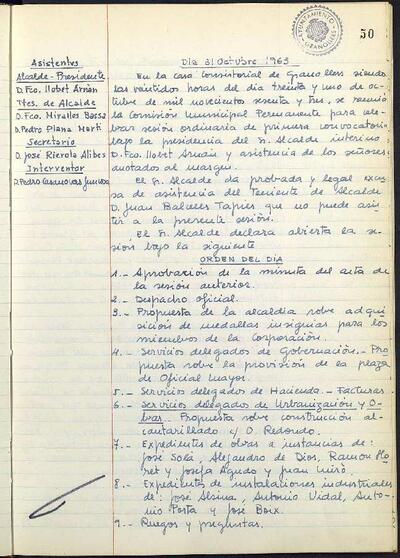 50
AYUNTAMIENTO
GRANOLLERS
Asistentes
Alcalde-Presidente
D. Fco. Llobet Arnán
Ttes. de Alcalde
D. Fco. Miralles Bassa
D. Pedro Plana Martí
Secretario
D. José Rierola Alibés
Interventor
D. Pedro
Día 31 Octubre 1963
En la casa Consistorial de Granollers siendo
las veintidós horas del día treinta y uno de oc-
tubre de mil novecientos sesenta y tres, se reunió
la Comisión Municipal Permanente para cele-
brar sesión ordinaria de primera convocatoria
bajo la presidencia del Sr. Alcalde interino,
D. Fco. Llobet Arnán y asistencia de los señores
anotados al margen.
El Sr. Alcalde da probada y legal excu-
sa de asistencia del Teniente de Alcalde
D. Juan Balcells Tapies que no puede asis-
tir a la presente sesión.
El Sr. Alcalde declara abierta la se-
sión bajo la siguiente
ORDEN DEL DIA
1.- Aprobación de la minuta del acta de
la sesión anterior.
2.- Despacho oficial.
3.- Propuesta de la alcaldía sobre adqui-
sición de medallas insignias para los
miembros de la Corporación.
4.- Servicios delegados de Gobernación.- Pro
puesta sobre la provisión de la plaza
de Oficial Mayor.
5.- Servicios delegados de Hacienda.- Facturas
6.- Servicios delegados de Urbanización y O-
bras. Propuesta sobre construcción al-
cantarillado c/ O. Redondo.
7.- Expedientes de obras a instancias de:
José Solá, Alejandro de Dios, Ramón Llo-
ret y Josefa Agudo y Juan Miró.
8.- Expedientes de instalaciones industriales
de: José Alsina, Antonio Vidal, Anto-
nio Porta y José Boix.
9.- Ruegos y preguntas.